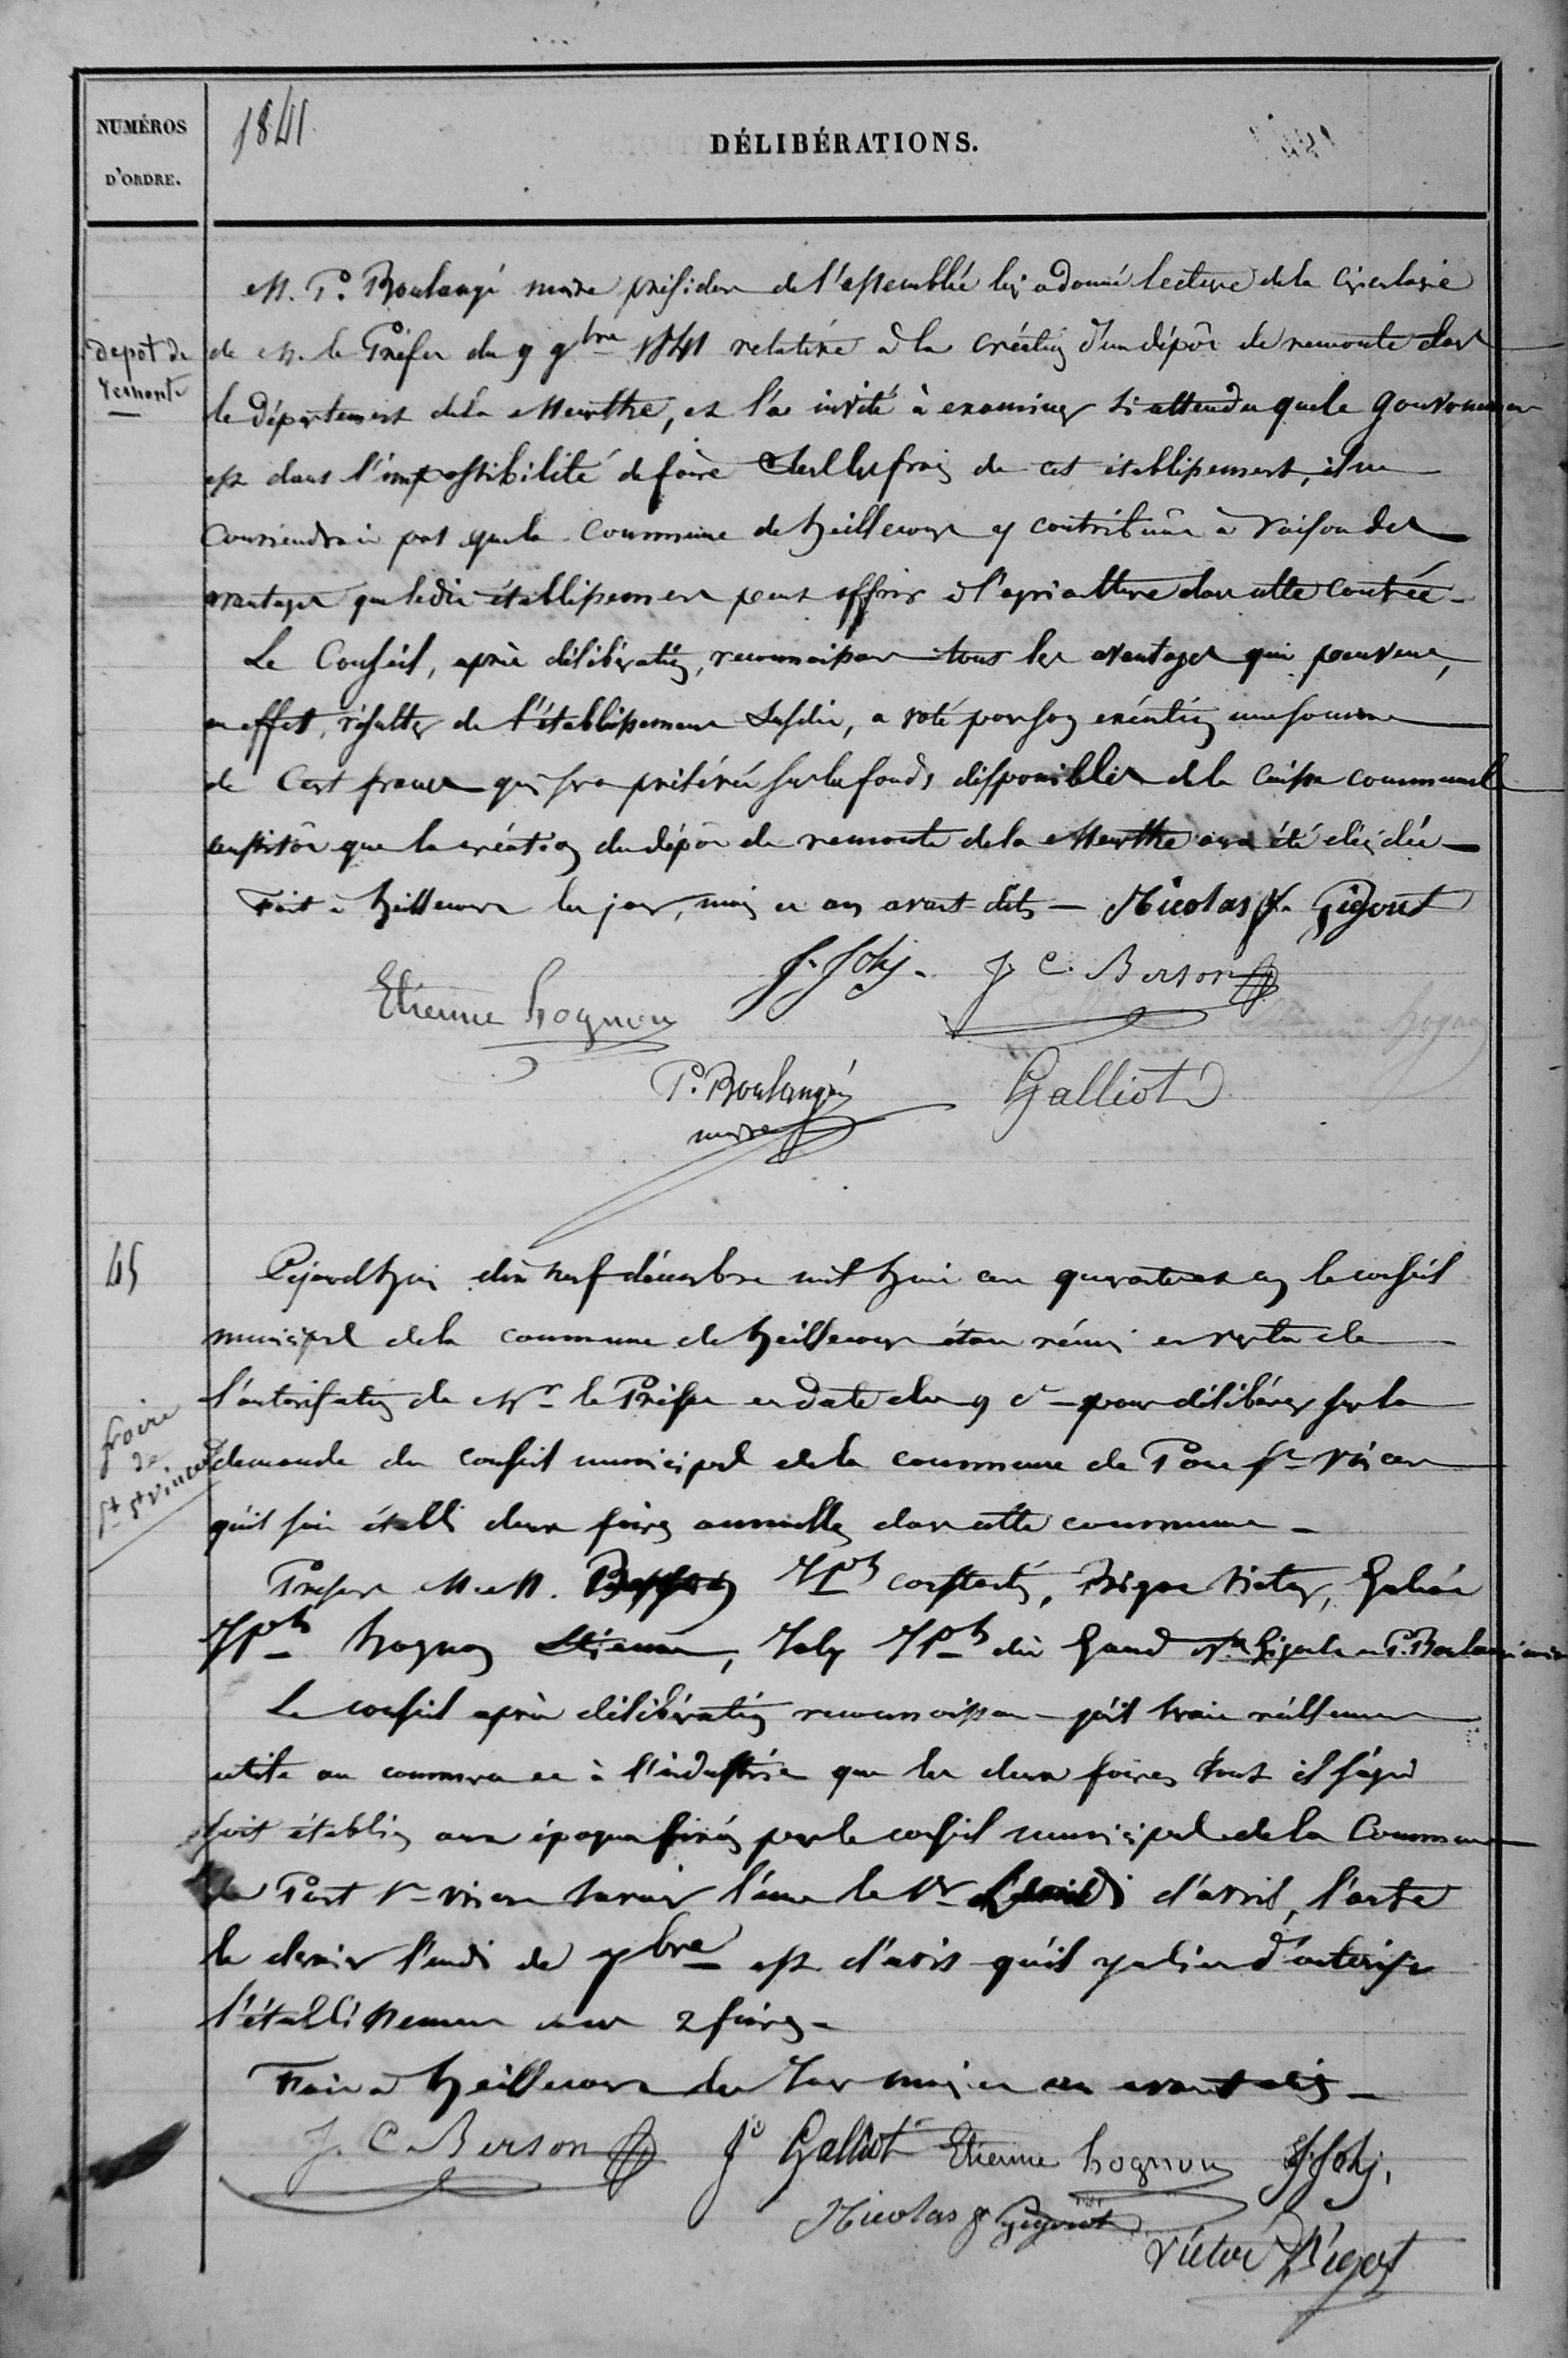 NUMÉROS
D'ORDRE.
1841
DÉLIBÉRATIONS.
M. P. Boulangé maire président de l'assemblée lui a donné lecture de la circulaire
depot de
remonte
de M. le Préfet du 9 9bre 1841 relative à la création d'un dépôt de remonte dans
le département de la Meurthe, et l'a invité à examiner si attendu que le Gouvernement
est dans l'impossibilité de faire seul les frais de cet établissement, il ne
conviendrait pas que la commune de heillecourt y contribuât à raison des
avantages que ledit établissement peut offrir à l'agriculture dans cette contrée -
Le Conseil, après délibération, reconnaissant tous les avantages qui peuvent,
en effet, résulter de l'établissement susdit, a voté pour son exécution une somme
de Cent francs qui sera prélevée sur les fonds disponibles de la caisse communale
aussitôt que la création du dépôt de remonte de la Meurthe aura été décidée -
Fait à heillecourt les jour, mois et an avant dits - Nicolas F. Gigout
J. Joly. J. C. Berson
Etienne hognon
P. Boulangé
maire
Galliot
45
Cejourd'hui dix neuf décembre mil huit cent quarante et un le conseil
municipal de la commune de heillecourt étant réuni en vertu de
l'autorisation de Mr le Préfet en date du 9 ct pour délibérer sur la
foire
de
Pt St Vincent
demande du conseil municipal de la commune de Pont St Vincent
qu'il soit établi deux foires annuelles dans cette commune -
Présents M.M. Jph constantin, Bigot Victor, Galliot
Jph hognon Etienne, Joly Jph dit Grand Nas Gigout et P. Boulangé maire
Le conseil après délibération reconnaissant qu'il serait réellement
utile au commerce et à l'industrie que les deux foires dont il s'agit
soit établies aux époques fixées par le conseil municipal de la Commune
de Pont St vincent savoir l'une le 1er Lundi d'avril, l'autre
le dernier lundi de 7bre est d'avis qu'il y a lieu d'autoriser
l'établissement des 2 foires -
Fait à heillecourt les Jour mois et an avant dits -
J. C. Berson Jh Galliot Etienne hognon J. Joly.
Nicolas F Gigout
Victor Bigot